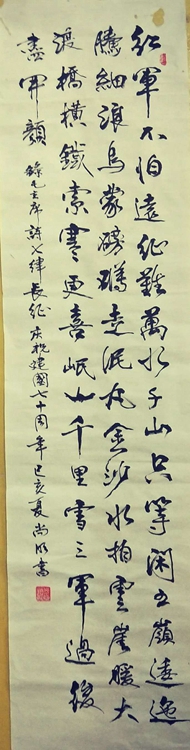 紅軍不怕遠征難萬水千山只等闲五嶺逶迤
騰細浪烏蒙磅礴走泥丸金沙水拍雲崖暖大
渡橋橫鐵索寒更喜岷山千里雪三軍過後
盡開顏 錄毛主席詩七律長征 慶祝建國七十周年己亥夏 尚書